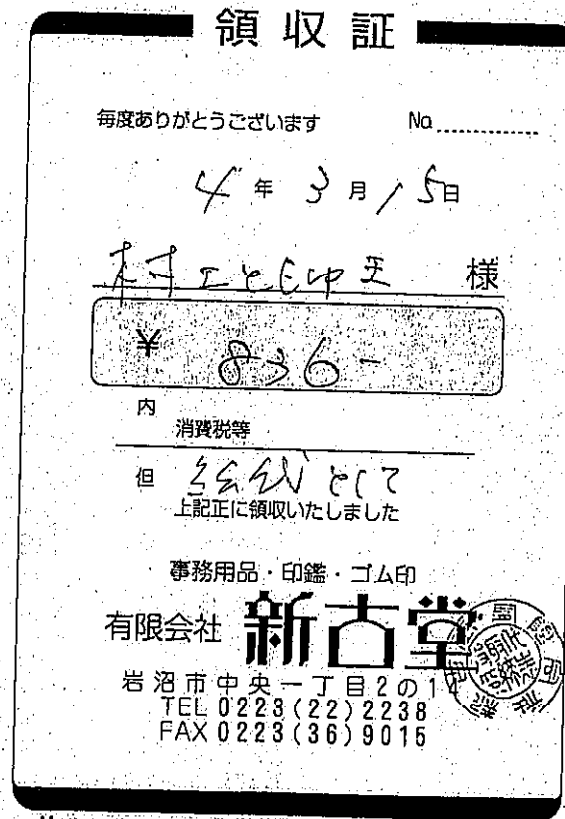 領収証
毎度ありがとうございます No.
4年3月15日
様
¥ 836-
内
消費税等
但 として
上記正に領収いたしました
事務用品・印鑑・ゴム印
有限会社 新古堂
岩沼市中央一丁目2の1
TEL 0223(22)2238
FAX 0223(36)9015